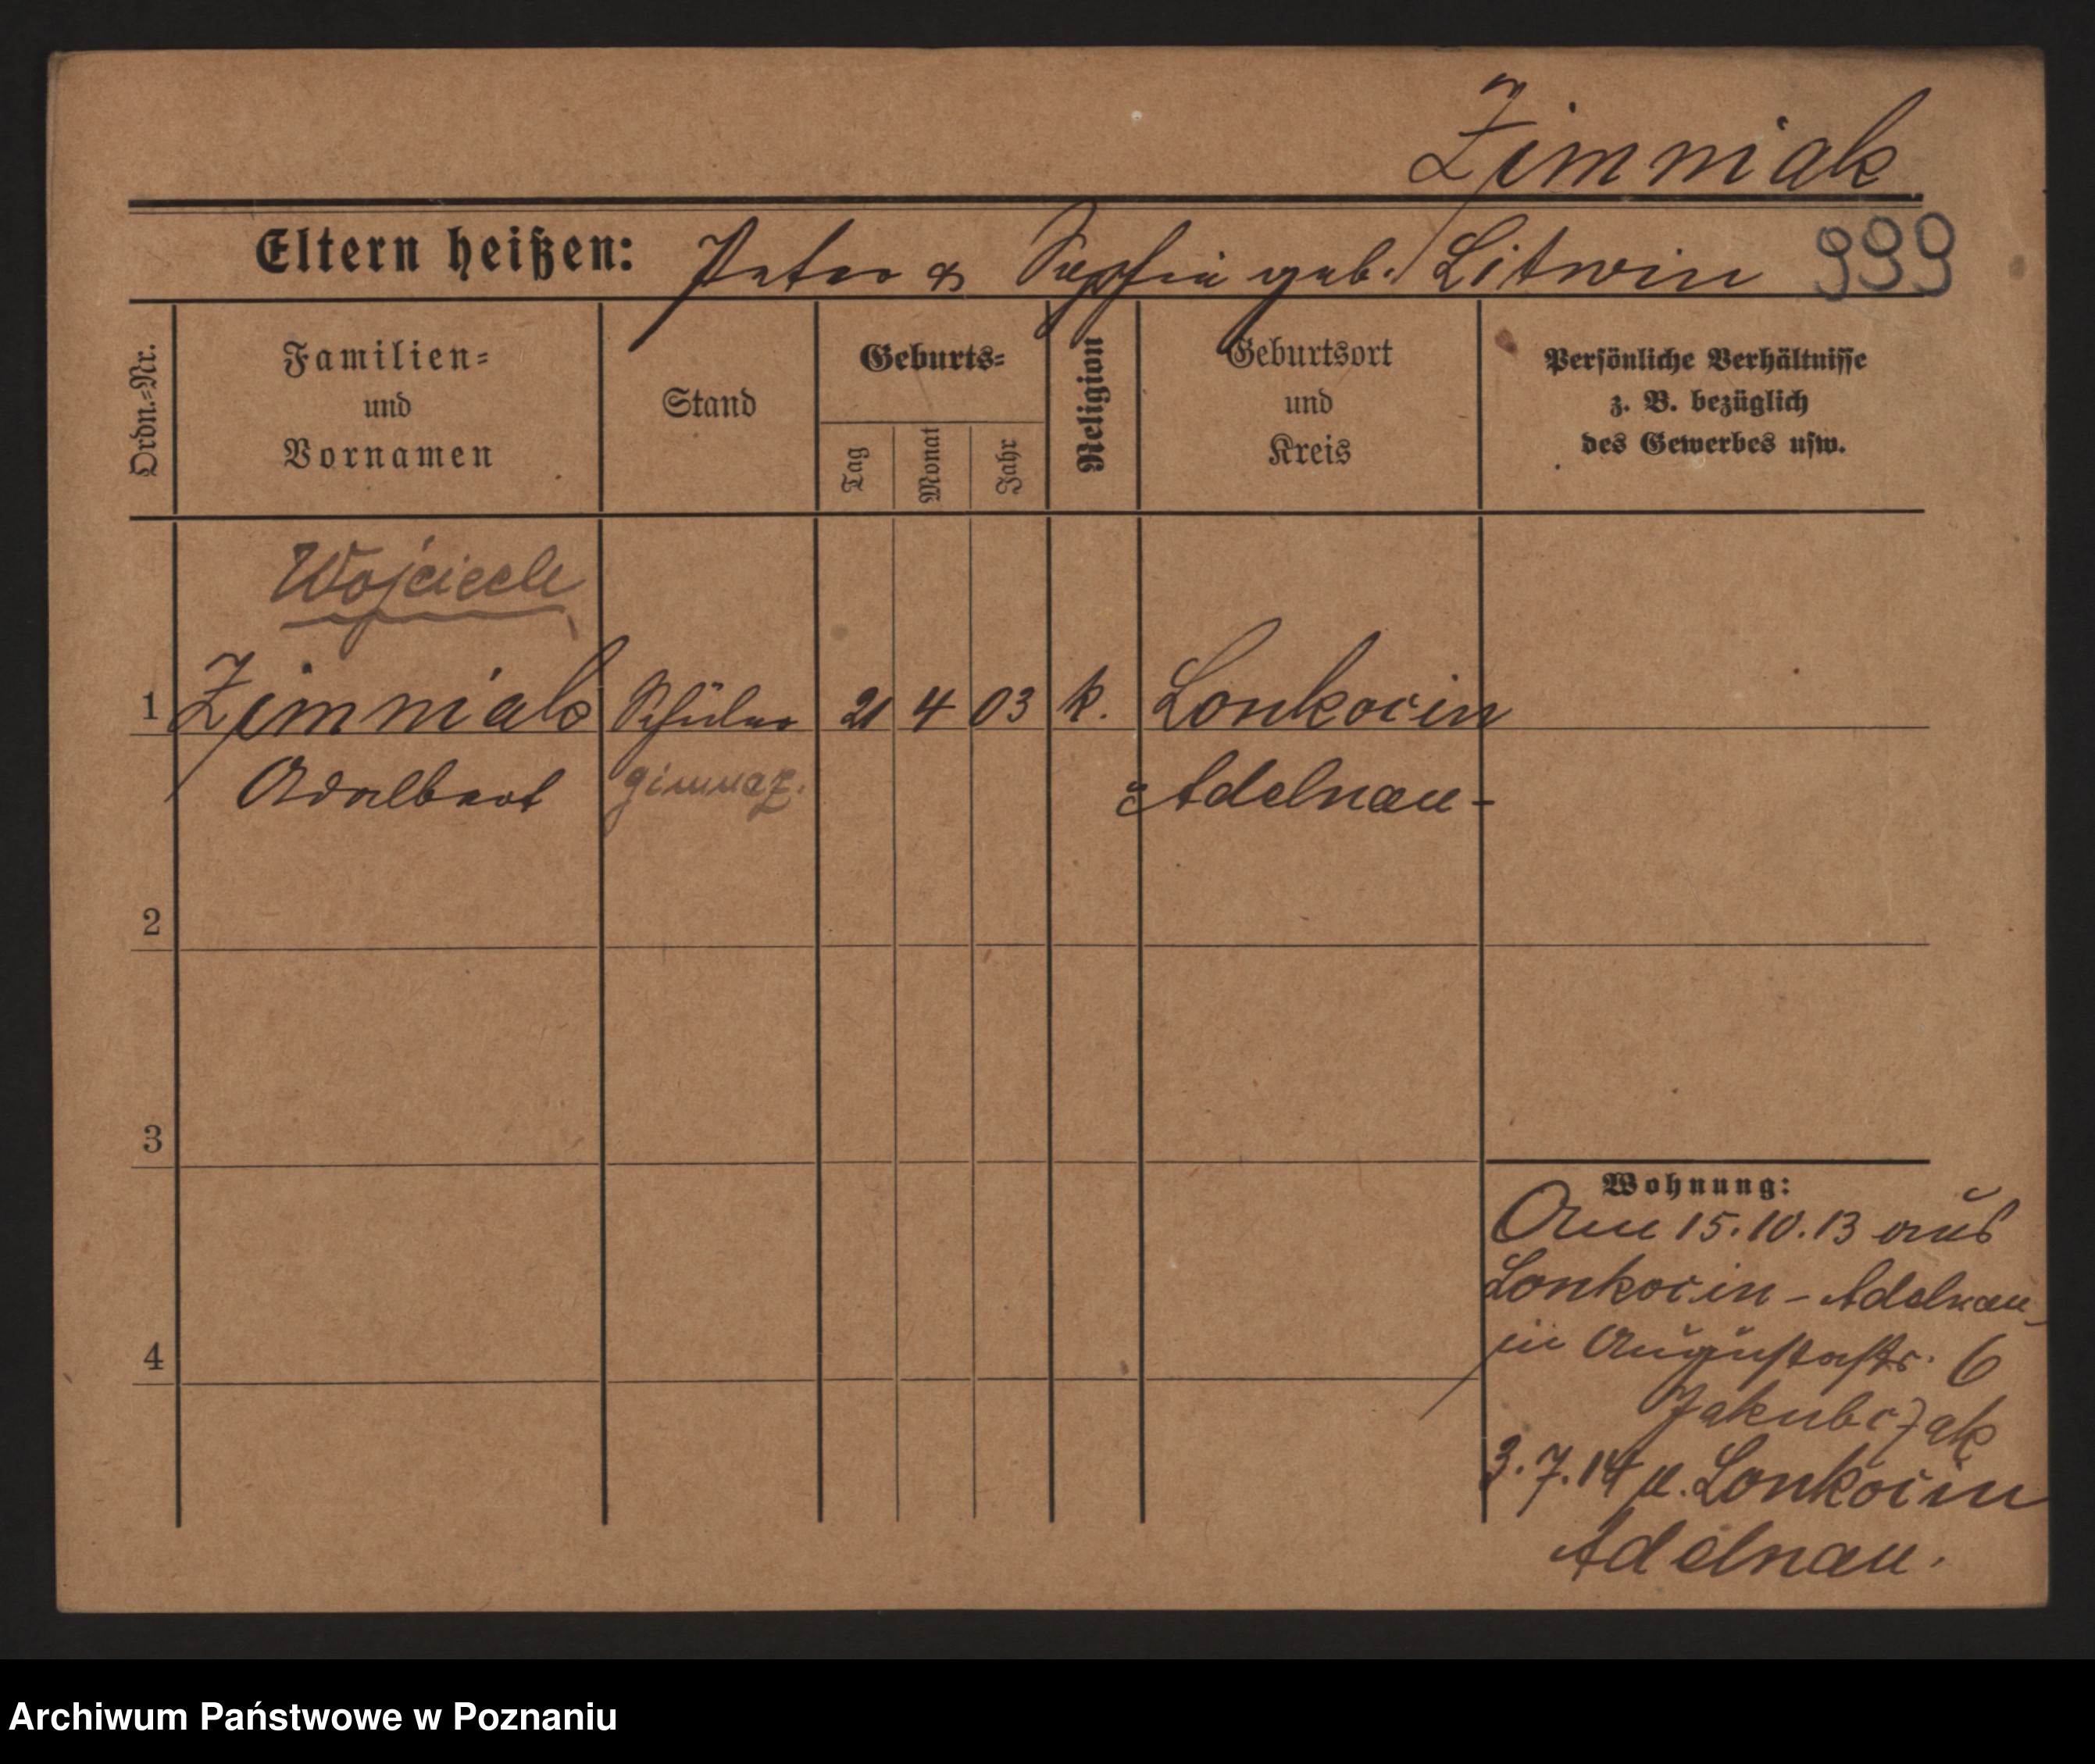 Zimniak
Eltern heißen: Peter & Sophia geb. Litwin 999
Ordn.-Nr.
Familien-
und
Vornamen
Stand
Geburts-
Tag
Monat
Jahr
Religion
Geburtsort
und
Kreis
Persönliche Verhältnisse
z. B. bezüglich
des Gewerbes usw.
Wojciech
1 Zimniak Schüler 21 4 03 k. Lonkocin
Adalbert gimnaz. Adelnau-
2
3
4
Wohnung:
Am 15.10.13 aus
Lonkocin - Adelnau
in Augustastr. 6
Jakubczak
3.7.14 n. Lonkocin
Adelnau.
Archiwum Państwowe w Poznaniu